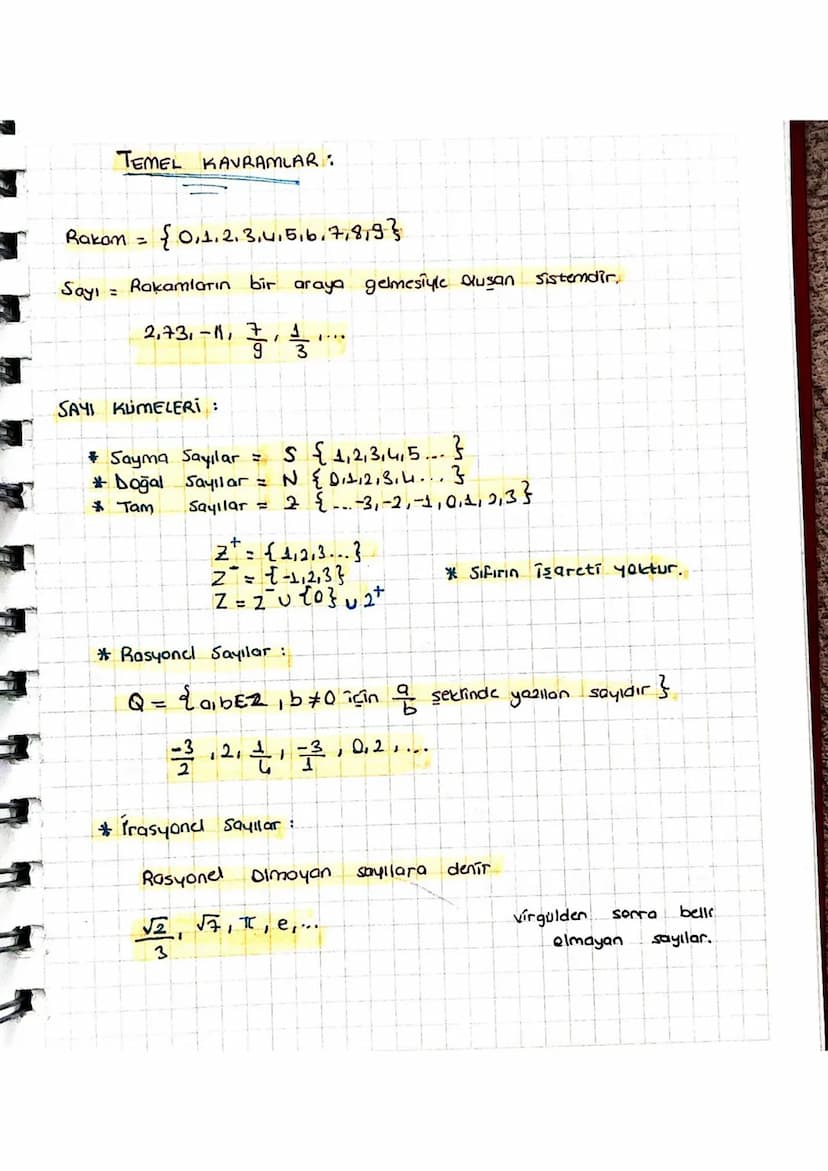 TEMEL KAVRAMLAR:
Rakam = {0,1,2,3,4,5,6,7,8,9}
Sayı = Rakamların bir araya gelmesiyle oluşan sistemdir.
2,73, -11, 7/9, 1/3, ...
SAYI KÜMELERİ:
* Sayma Sayılar = S {1,2,3,4,5...}
* Doğal Sayılar = N {0,1,2,3,4...}
* Tam Sayılar = Z {...-3,-2,-1,0,1,2,3}
Z⁺ = {1,2,3...}
Z⁻ = {-1,2,3}
* Sıfırın işareti yoktur.
Z = Z⁻ ∪ {0} ∪ Z⁺
* Rasyonel Sayılar:
Q = {a,b∈Z, b≠0 için a/b şeklinde yazılan sayıdır}
-3/2, 2, 1/4, -3/1, 0,2, ...
* İrasyonel Sayılar:
Rasyonel olmayan sayılara denir
√2/3, √7, π, e, ...
virgülden sonra belli
olmayan sayılar.